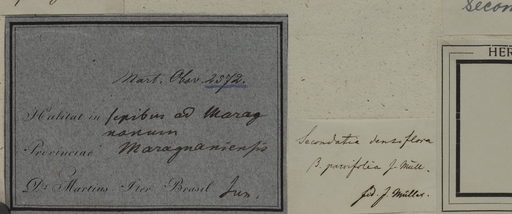 Secon
Mart. Obs. 2372.
Habitat in sepibus ad Marag
nanum
Provinciae Maragnaniensis
Dr. Martius Iter Brasil Jun.
Secondatia densiflora
β. parvifolia J. Müll.
fid J. Müller.
HER